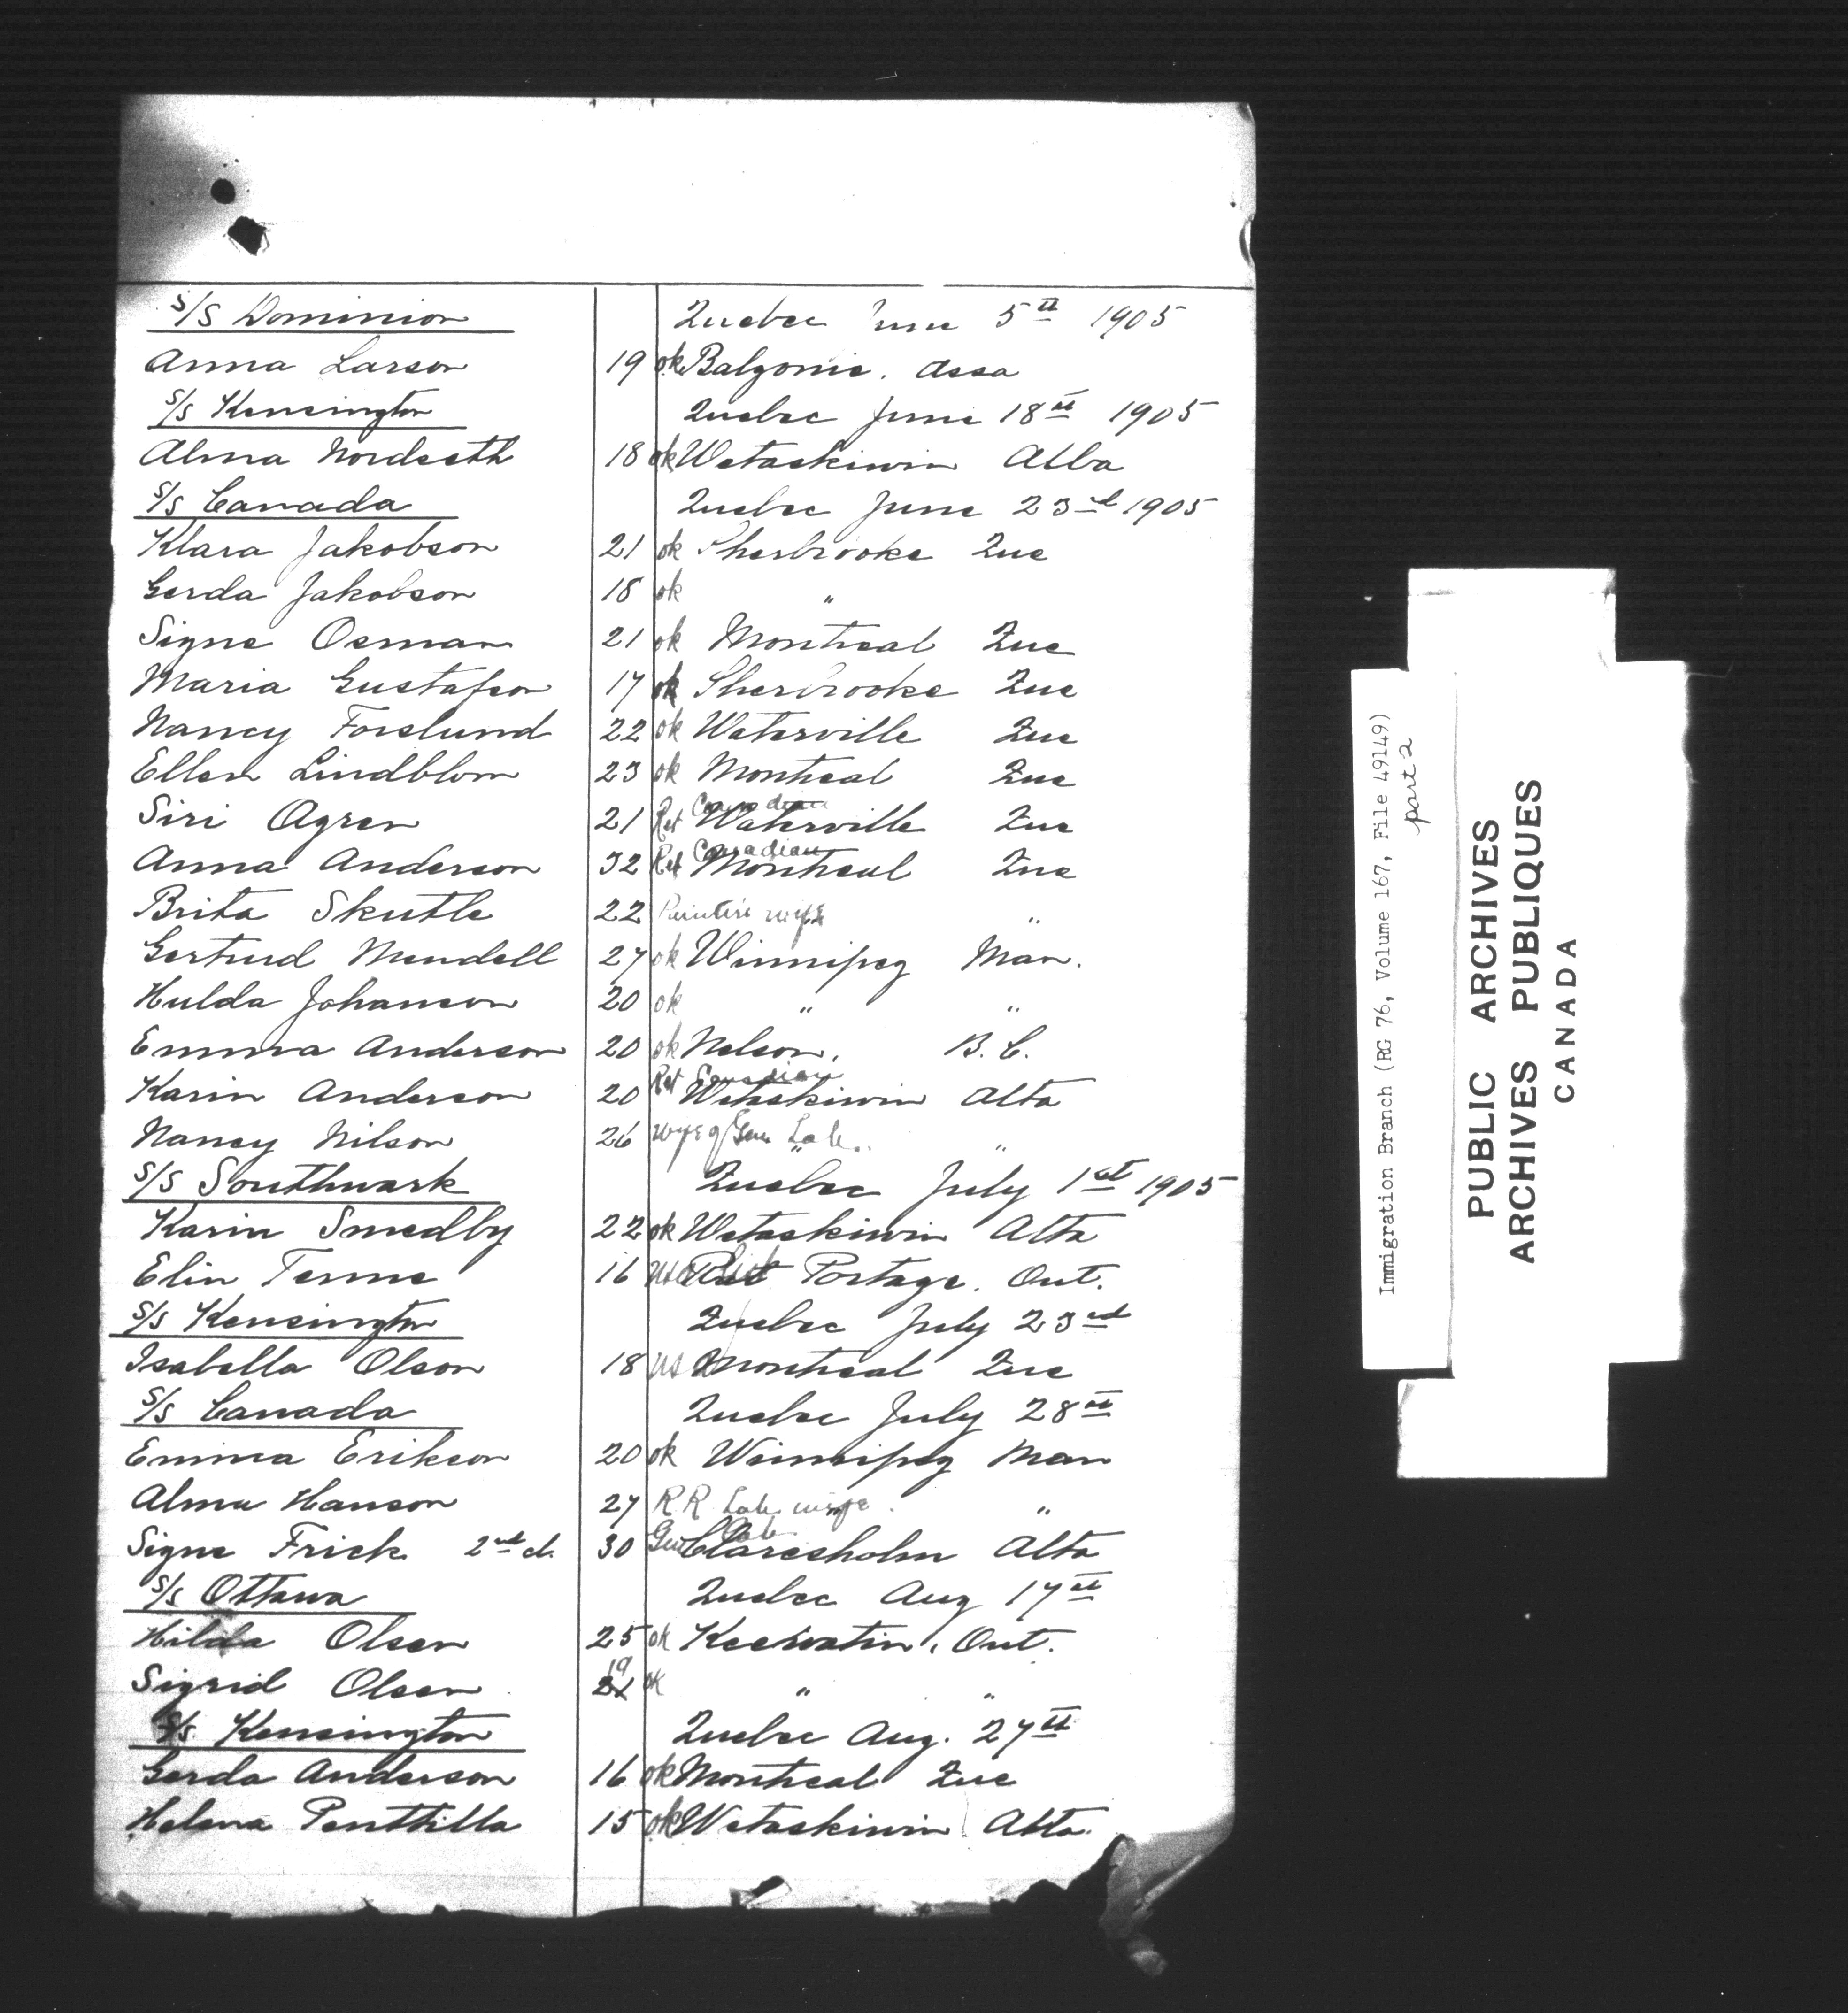 S/S Dominion Quebec June 5th 1905
Anna Larson 19 ok Balgonie. Assa
S/S Kensington Quebec June 18th 1905
Alma Nordseth 18 ok Wetaskiwin Alba
S/S Canada Quebec June 23rd 1905
Klara Jakobson 21 ok Sherbrooke Que
Gerda Jakobson 18 ok "
Signe Osman 21 ok Montreal Que
Maria Gustafson 17 ok Sherbrooke Que
Nancy Forslund 22 ok Waterville Que
Ellen Lindblom 23 ok Montreal Que
Siri Agren 21 Ret Canadian Waterville Que
Anna Anderson 32 Ret Canadian Montreal Que
Brita Skutle 22 wife "
Gertrud Mendell 27 ok Winnipeg Man.
Hulda Johanson 20 ok " "
Emma Anderson 20 ok Nelson, B.C.
Karin Anderson 20 Ret Canadian Wetaskiwin Alta
Nancy Nilson 26 wife of Gen Lab. " "
S/S Southwark Quebec July 1st 1905
Karin Smedby 22 ok Wetaskiwin Alta
Elin Terme 16 Rat Portage. Ont.
S/S Kensington Quebec July 23rd
Isabella Olson 18 US Montreal Que
S/S Canada Quebec July 28th
Emma Erikson 20 ok Winnipeg Man
Alma Hanson 27 R.R Lab wife. "
Signe Frick 2nd cl. 30 Gen Lab Claresholm Alta
S/S Ottawa Quebec Aug 17th
Hilda Olsen 25 ok Keewatin, Ont.
Sigrid Olsen 19 ok " "
S/S. Kensington Quebec Aug. 27th
Gerda Anderson 16 ok Montreal Que
Helena Penttilla 15 ok Wetaskiwin Alta.
Immigration Branch (RG 76, Volume 167, File 49149)
part 2
PUBLIC ARCHIVES
ARCHIVES PUBLIQUES
CANADA